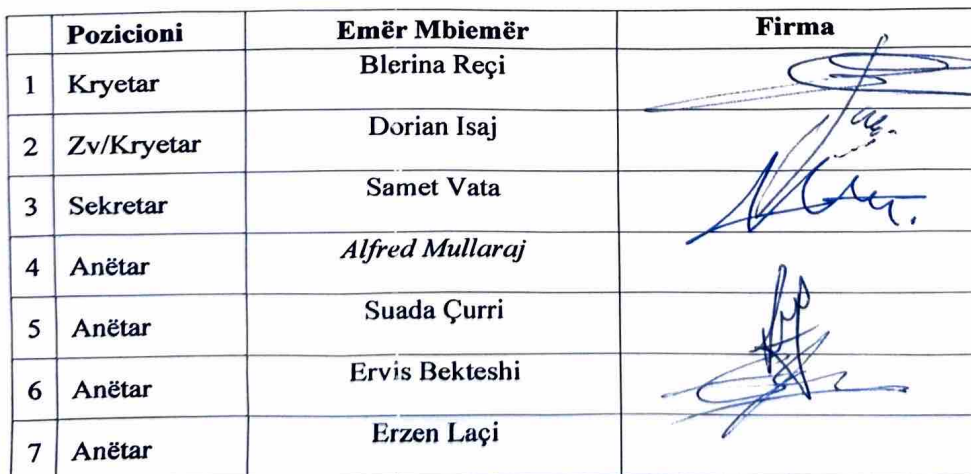 Pozicioni Emër Mbiemër Firma
1 Kryetar Blerina Reçi
2 Zv/Kryetar Dorian Isaj
3 Sekretar Samet Vata
4 Anëtar Alfred Mullaraj
5 Anëtar Suada Çurri
6 Anëtar Ervis Bekteshi
7 Anëtar Erzen Laçi